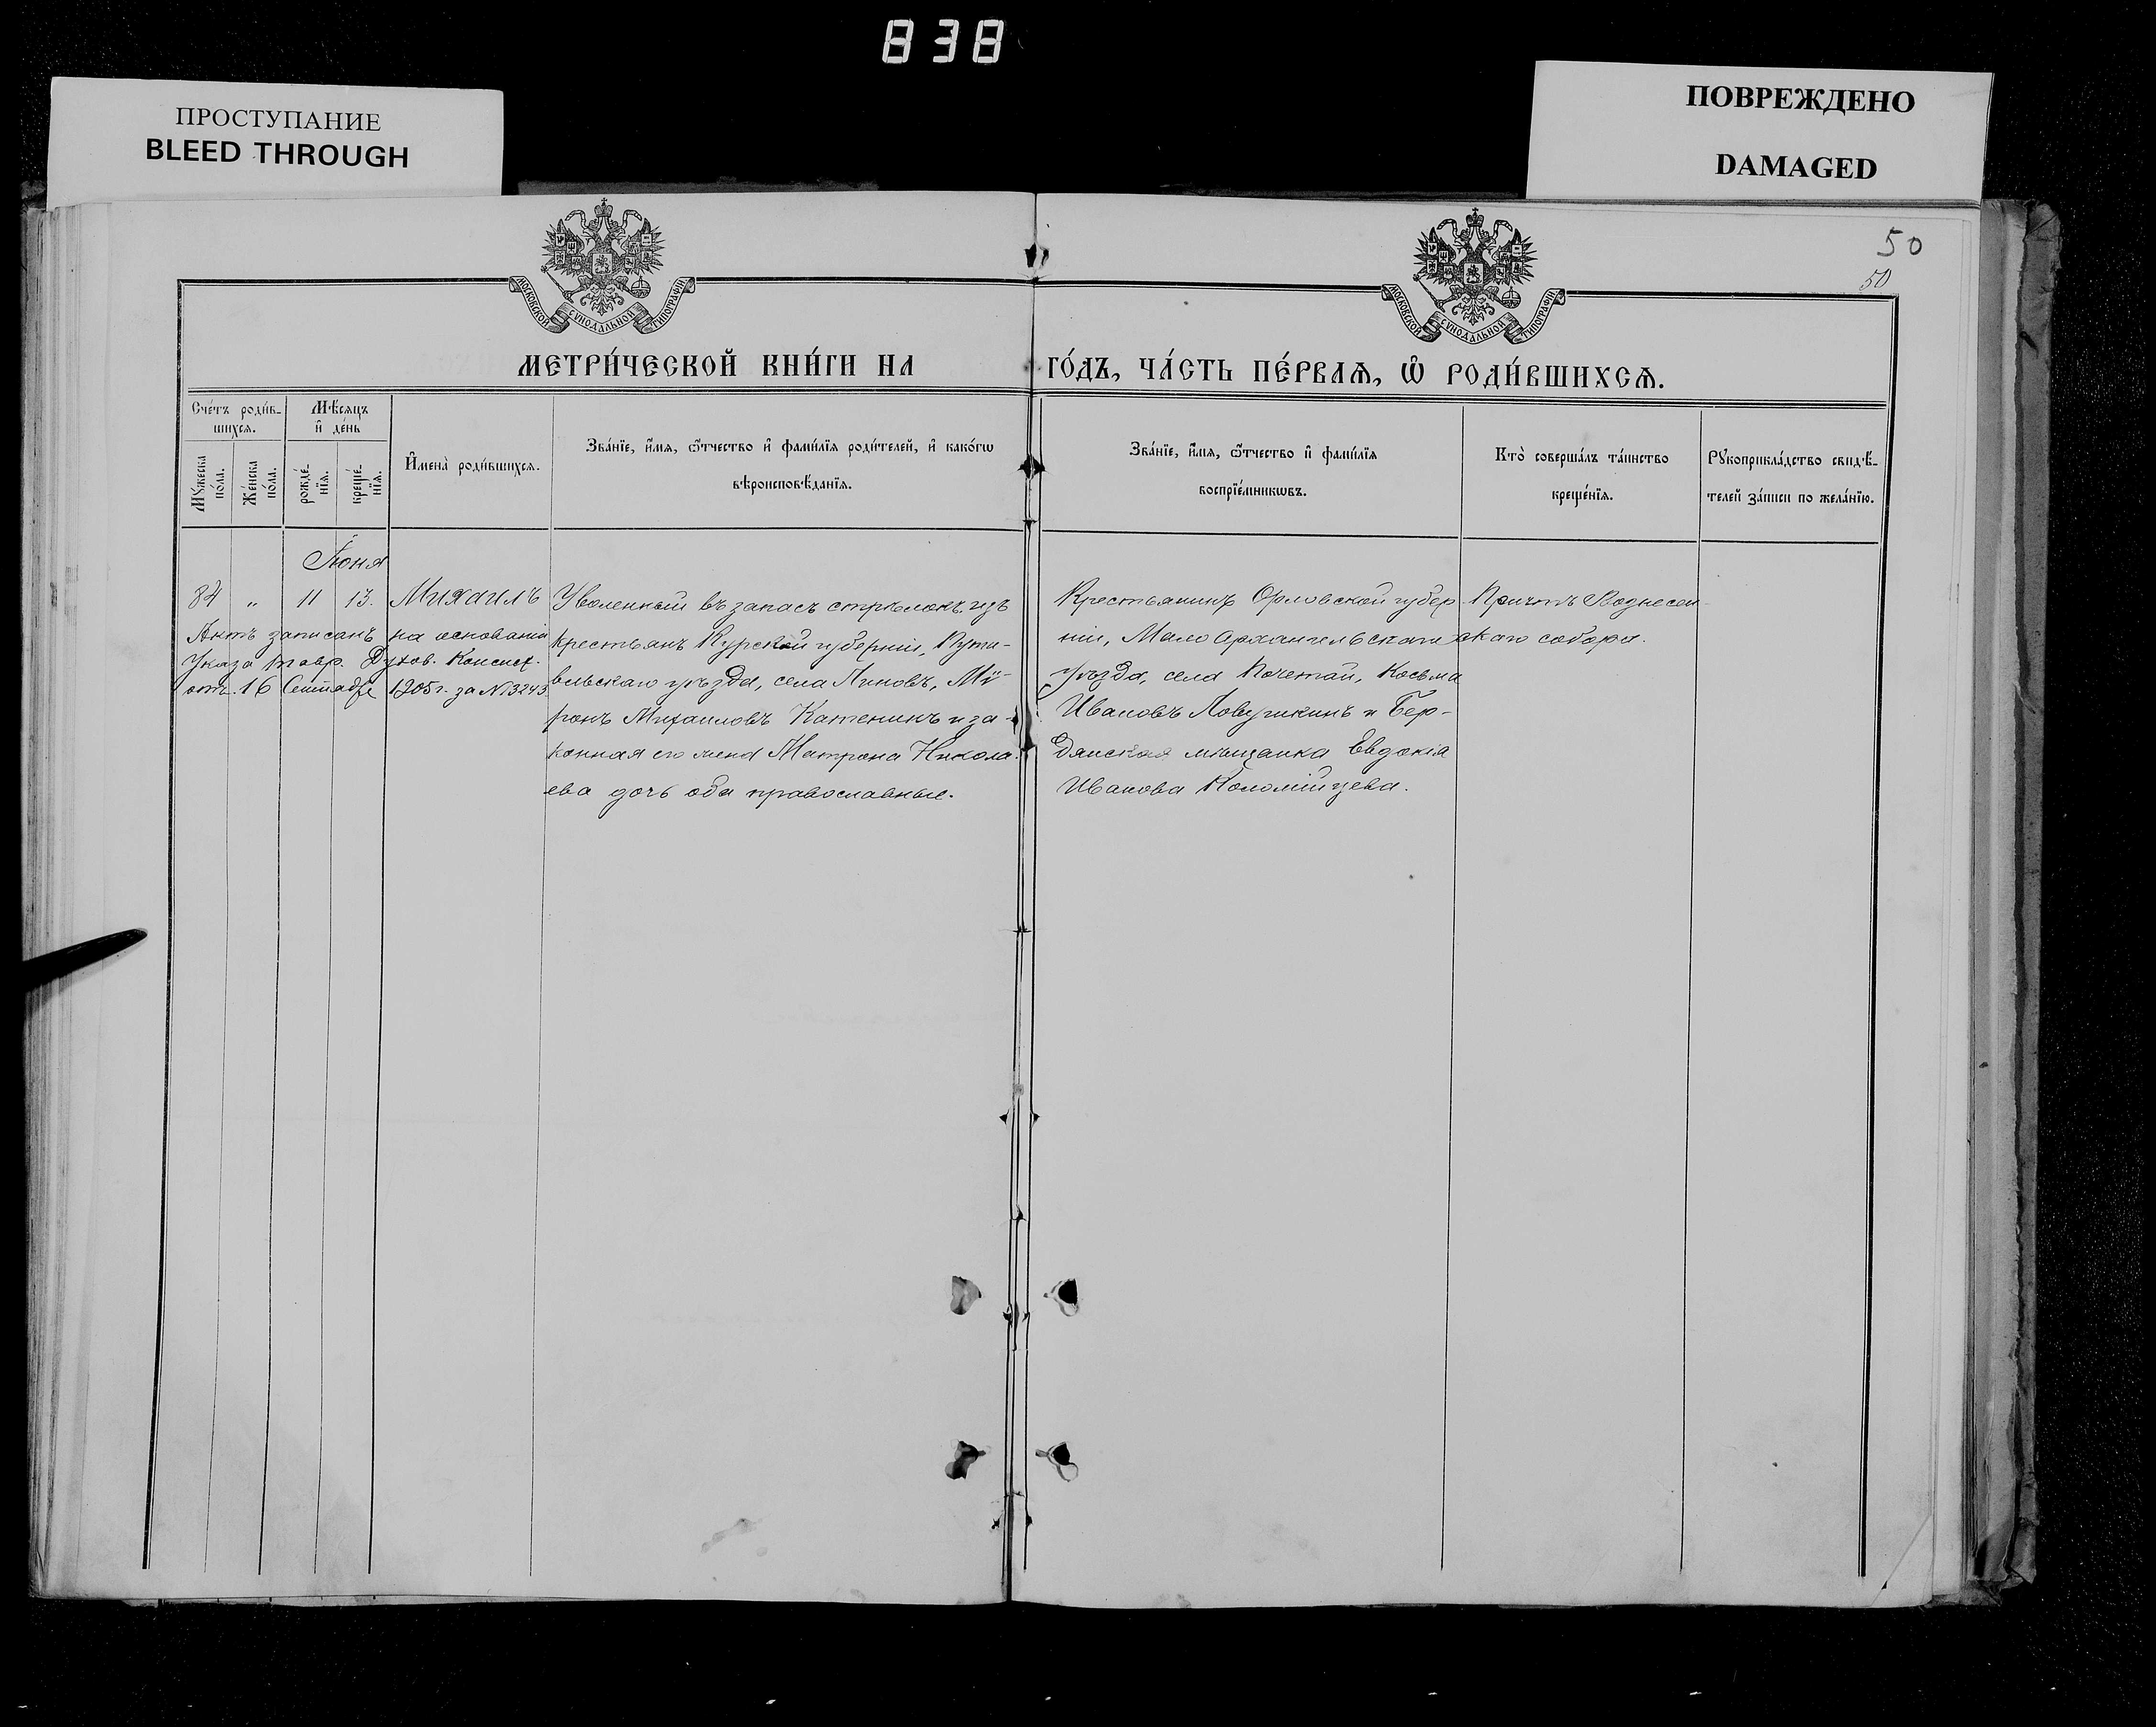 838
ПРОСТУПАНИЕ
BLEED THROUGH
ПОВРЕЖДЕНО
DAMAGED
50
50
МОСКОВСКОЙ СѴНОДАЛЬНОЙ ТИПОГРАФІИ
МОСКОВСКОЙ СѴНОДАЛЬНОЙ ТИПОГРАФІИ
МЕТРИ́ЧЕСКОЙ КНИ́ГИ НА
ГО́ДЪ, ЧА́СТЬ ПЕ́РВАѦ, Ѡ҆ РОДИ́ВШИХСѦ.
Сче́тъ роди́в-
шихсѧ.
Мѣ́сѧцъ
и҆ де́нь
Мꙋ́жеска
по́ла.
Же́нска
по́ла.
рожде́-
нїѧ.
креще́-
нїѧ.
И҆мена̀ роди́вшихсѧ.
Зва́нїе, и҆́мѧ, ѻ҆́тчество и҆ фами́лїѧ роди́телей, и҆ како́гѡ
вѣроисповѣ́данїѧ.
Зва́нїе, и҆́мѧ, ѻ҆́тчество и҆ фами́лїѧ
воспрїе́мникѡвъ.
Кто̀ соверша́лъ та́инство
креще́нїѧ.
Рꙋкоприкла́дство свидѣ́-
телей за́писи по жела́нїю.
Іюня
84 „ 11 13. Михаилъ
Актъ записанъ на основаніи
Указа Тавр. Духов. Консист.
отъ 16 Сентября 1905 г. за № 3243
Уволенный въ запасъ стрѣлокъ изъ
крестьянъ Курской губерніи, Пути-
вльскаго уѣзда, села Линовъ, Ми-
ронъ Михаиловъ Катенинъ и за-
конная его жена Матрона Никола-
ева дочь оба православные.
Крестьянинъ Орловской губер-
ніи, Мало Архангельскаго
уѣзда, села Косьма
Ивановъ Ловушкинъ и Бер-
дянская мѣщанка Евдокія
Иванова Коломійцева.
Причтъ Вознесен-
скаго собора.